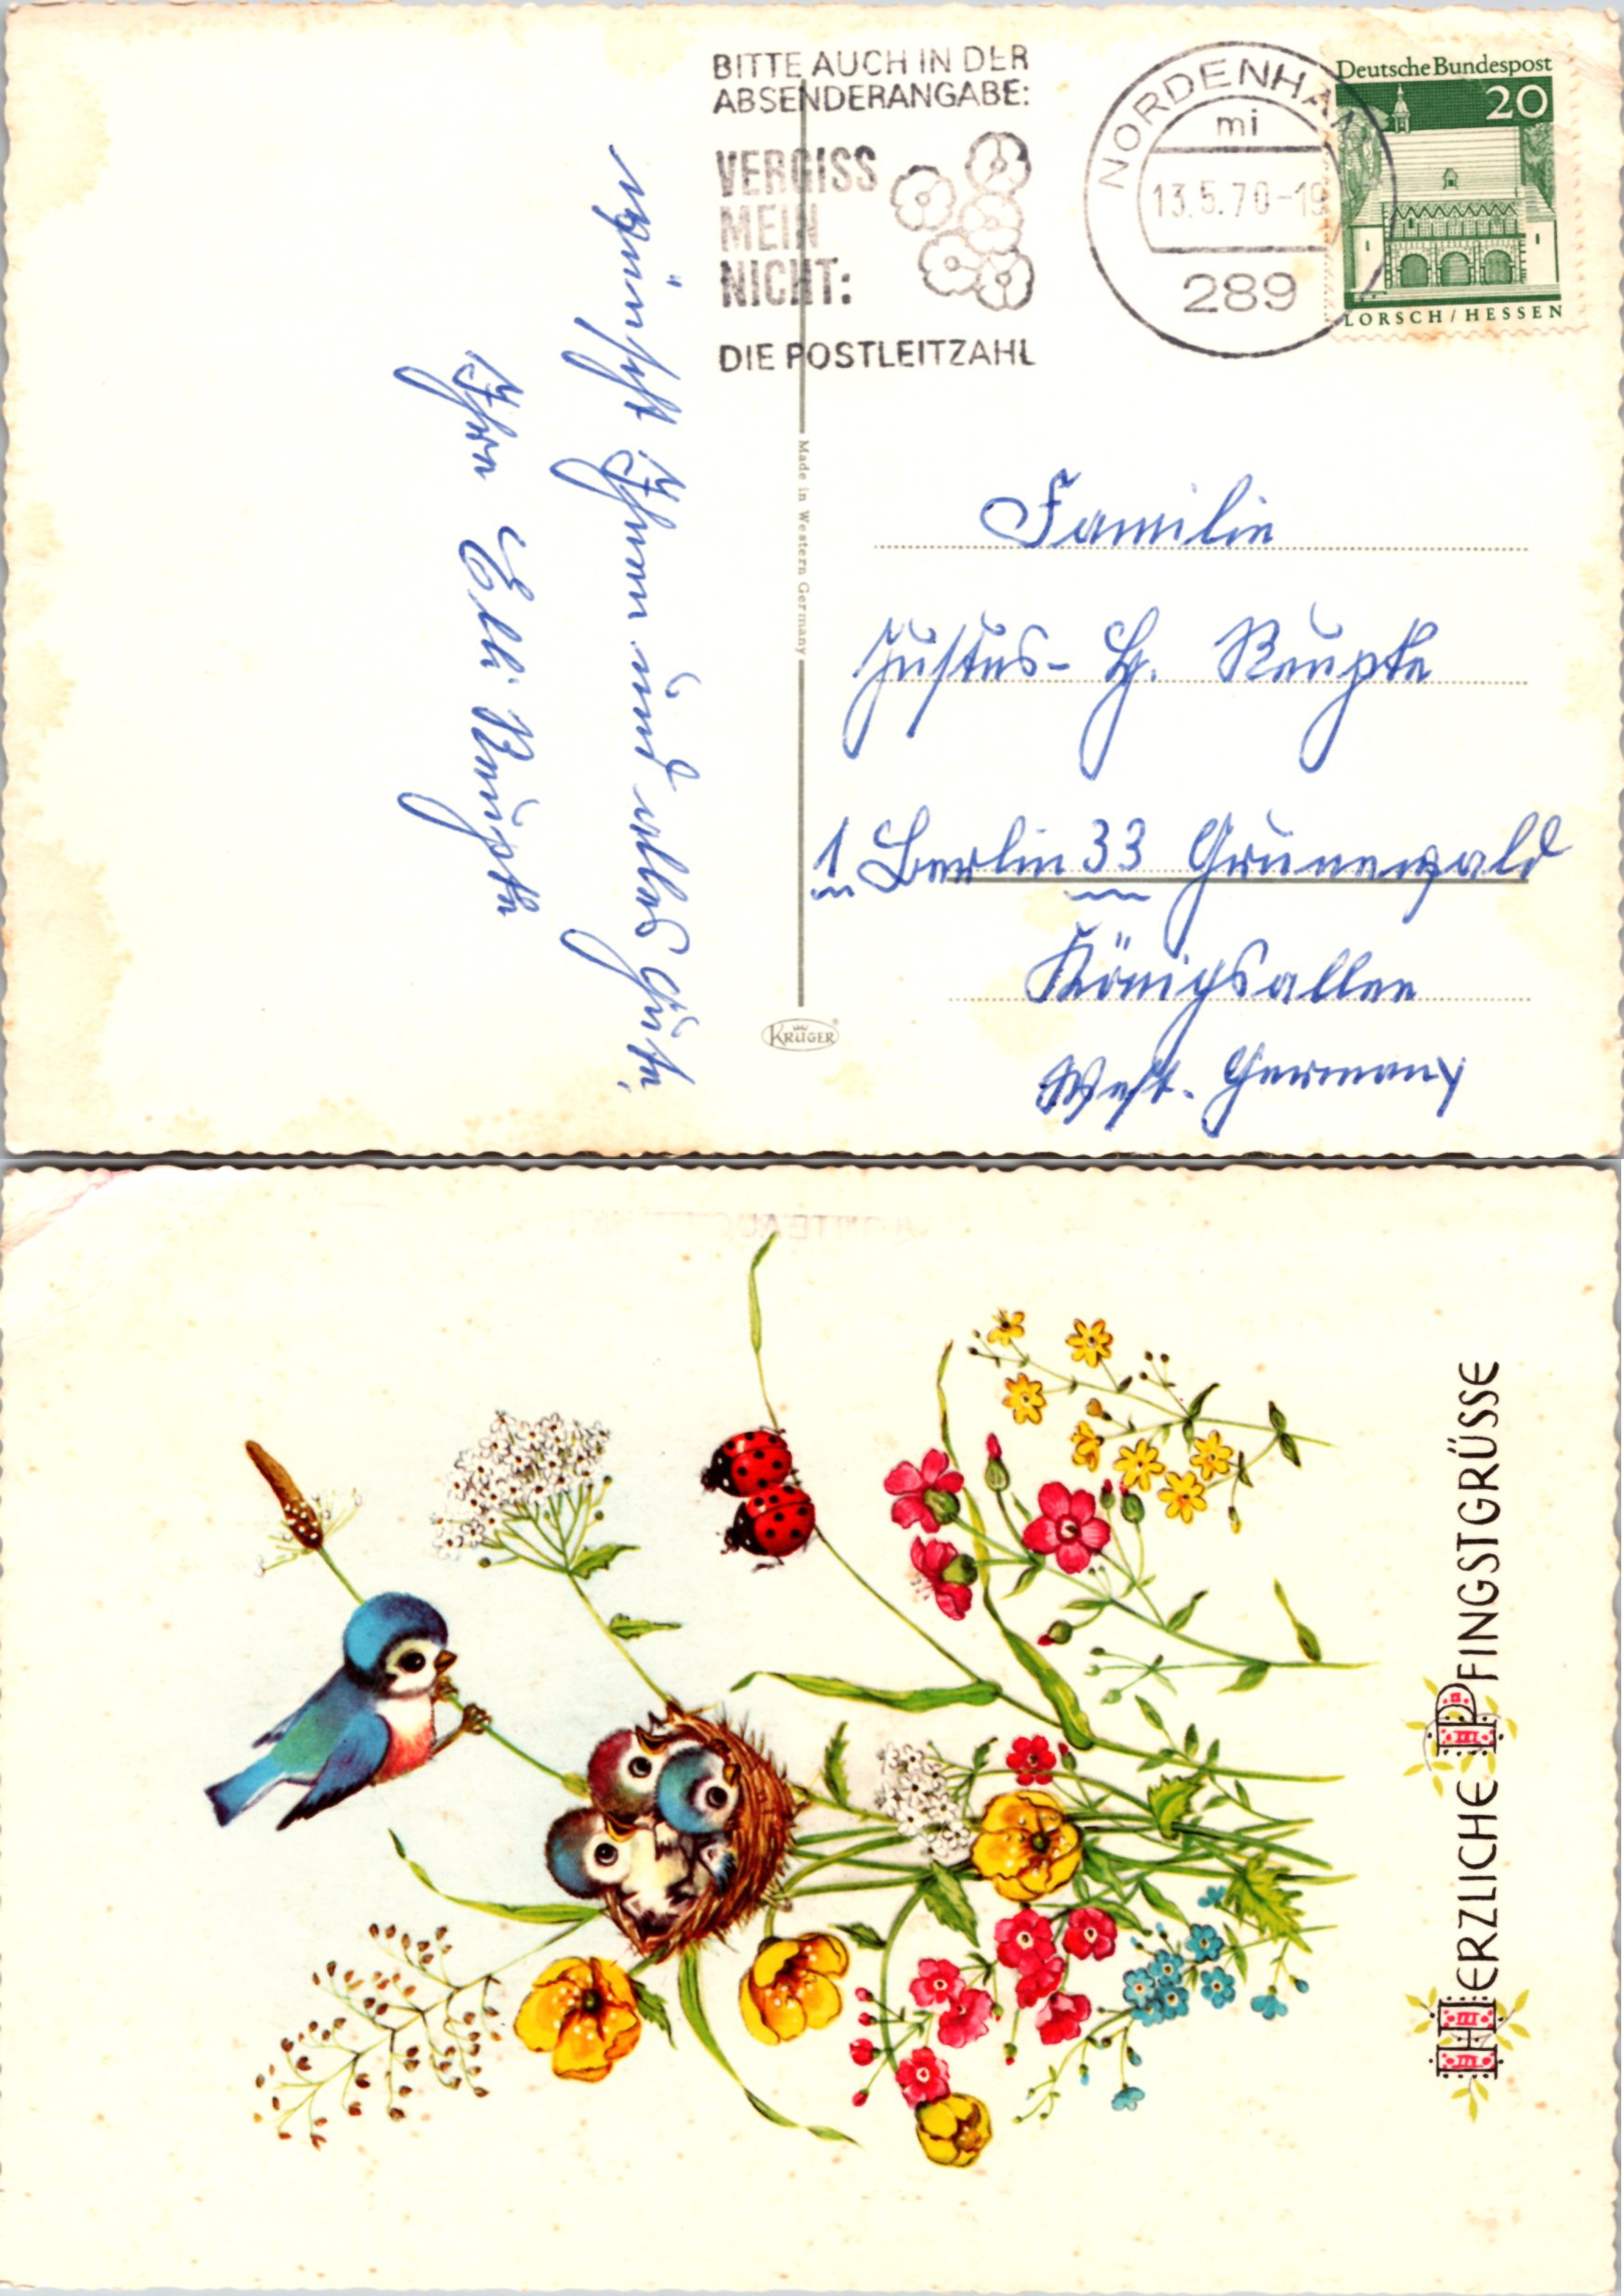 BITTE AUCH IN DER
ABSENDERANGABE:
VERGISS
MEIN
NICHT:
DIE POSTLEITZAHL
NORDENHAM
mi
13.5.70-19
289
Deutsche Bundespost
20
LORSCH/HESSEN
wünscht Ihnen und alles Gute,
Ihre Elli Raupke
Made in Western Germany
KRÜGER
Familie
Justus- H. Raupke
1 Berlin 33 Grunewald
Königsallee
West. Germany
HERZLICHE PFINGSTGRÜSSE